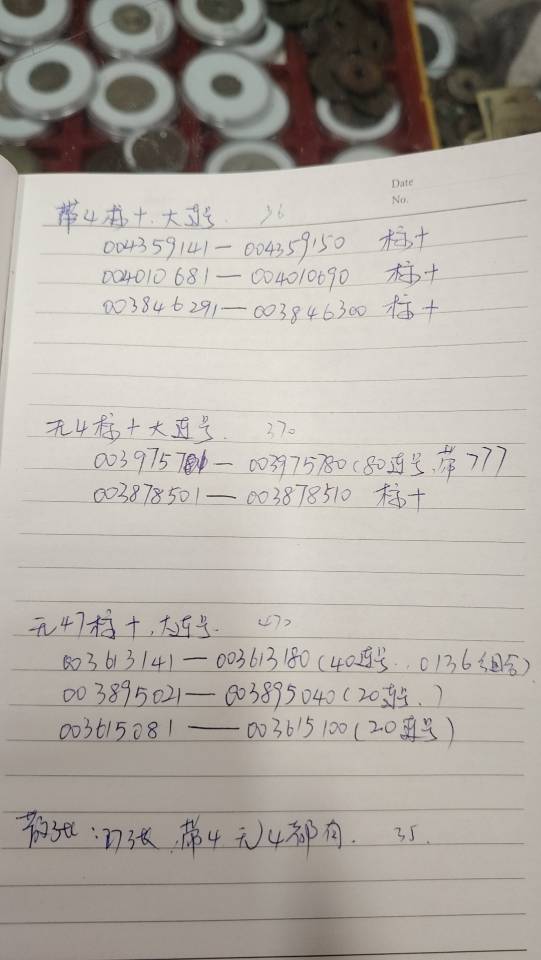 Date
No.
带4标十.大连号. 36
004359141—004359150 标十
004010681—004010690 标十
003846291—003846300 标十
无4标十大连号. 370
003975701—003975780(80连号.带777
003878501—003878510 标十
无47标十.大连号. 470
003613141—003613180(40连号..0136组合)
003895021—003895040(20连号.)
003615081——003615100(20连号)
散张:27张.带4无4都有. 35.